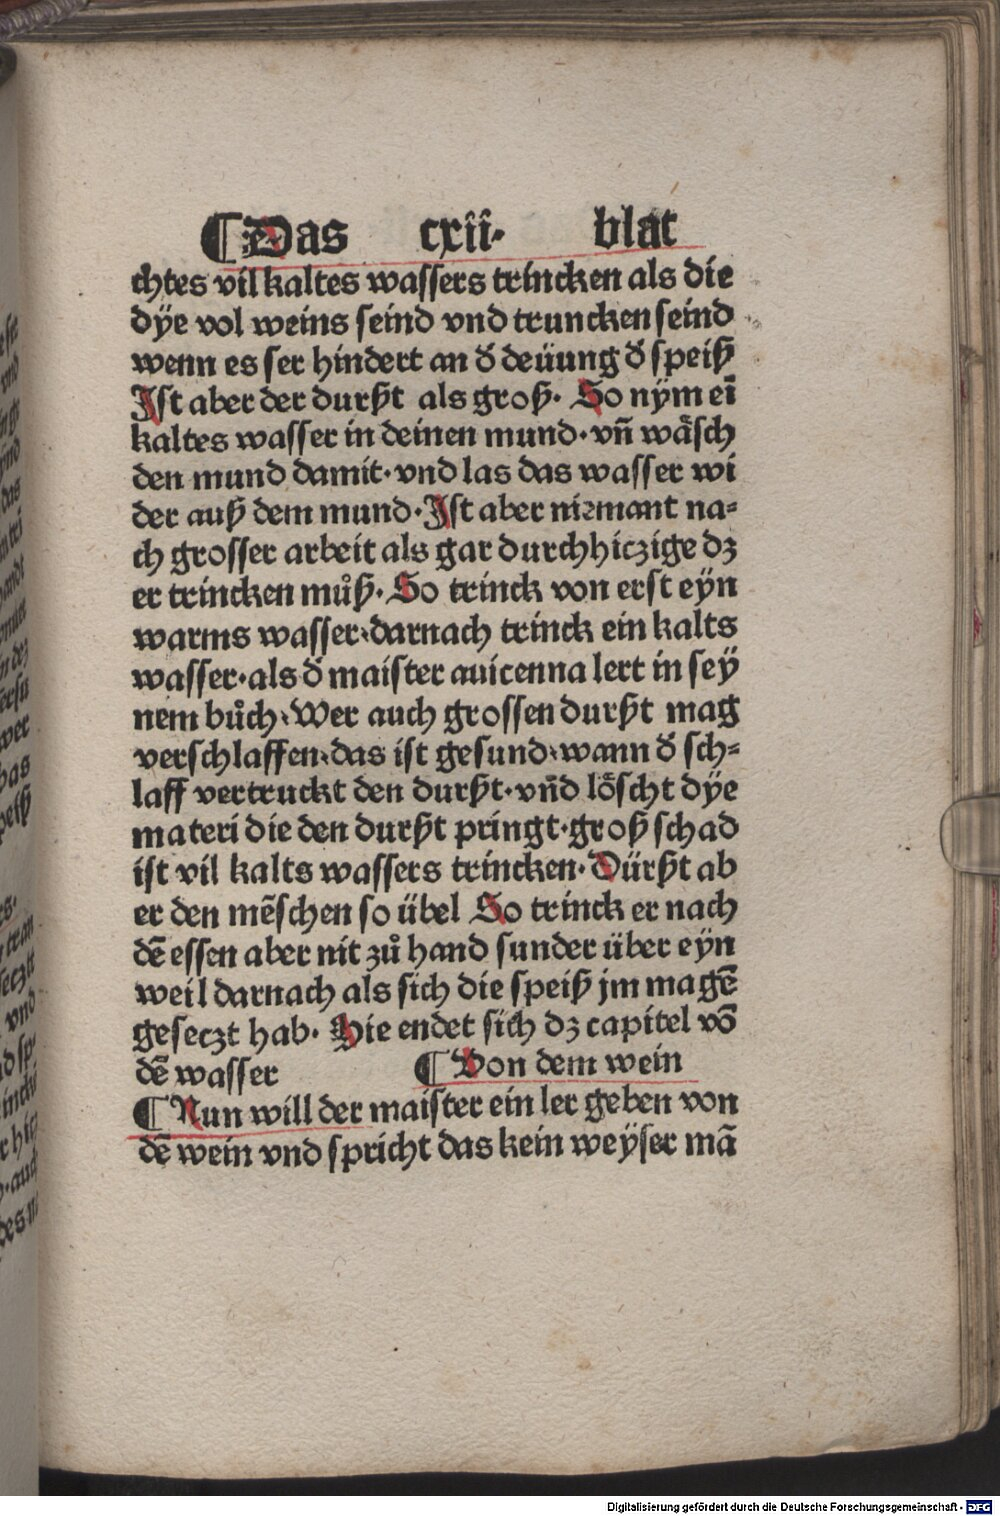 ¶ Das cxii· blat
chtes vil kaltes wassers trincken als die
dÿe vol weins seind vnd truncken seind
wenn es ser hindert an d̛ deüung d̛ speiß
Ist aber der durßt als groß· So nÿm eī
kaltes wasser in deinen mund·vn̄ wäsch
den mund damit·vnd las das wasser wi
der auß dem mund·Ist aber niemant na-
ch grosser arbeit als gar durchhiczige dz
er trincken můß· So trinck von erst eÿn
warms wasser·darnach trinck ein kalts
wasser·als d̛ maister auicenna lert in seÿ
nem bůch·Wer auch grossen durßt mag
verschlaffen·das ist gesund·wann d̛ sch-
laff vertruckt den durßt·vn̄d löscht dÿe
materi die den durßt pringt·groß schad
ist vil kalts wassers trincken·Dürßt ab
er den mēschen so übel So trinck er nach
dē essen aber nit zů hand sunder über eÿn
weil darnach als sich die speiß jm magē
geseczt hab· Hie endet sich dz capitel vō
dē wasser ¶ Von dem wein
¶ Nun will der maister ein ler geben von
dē wein vnd spricht das kein weÿser mā
Digitalisierung gefördert durch die Deutsche Forschungsgemeinschaft - DFG